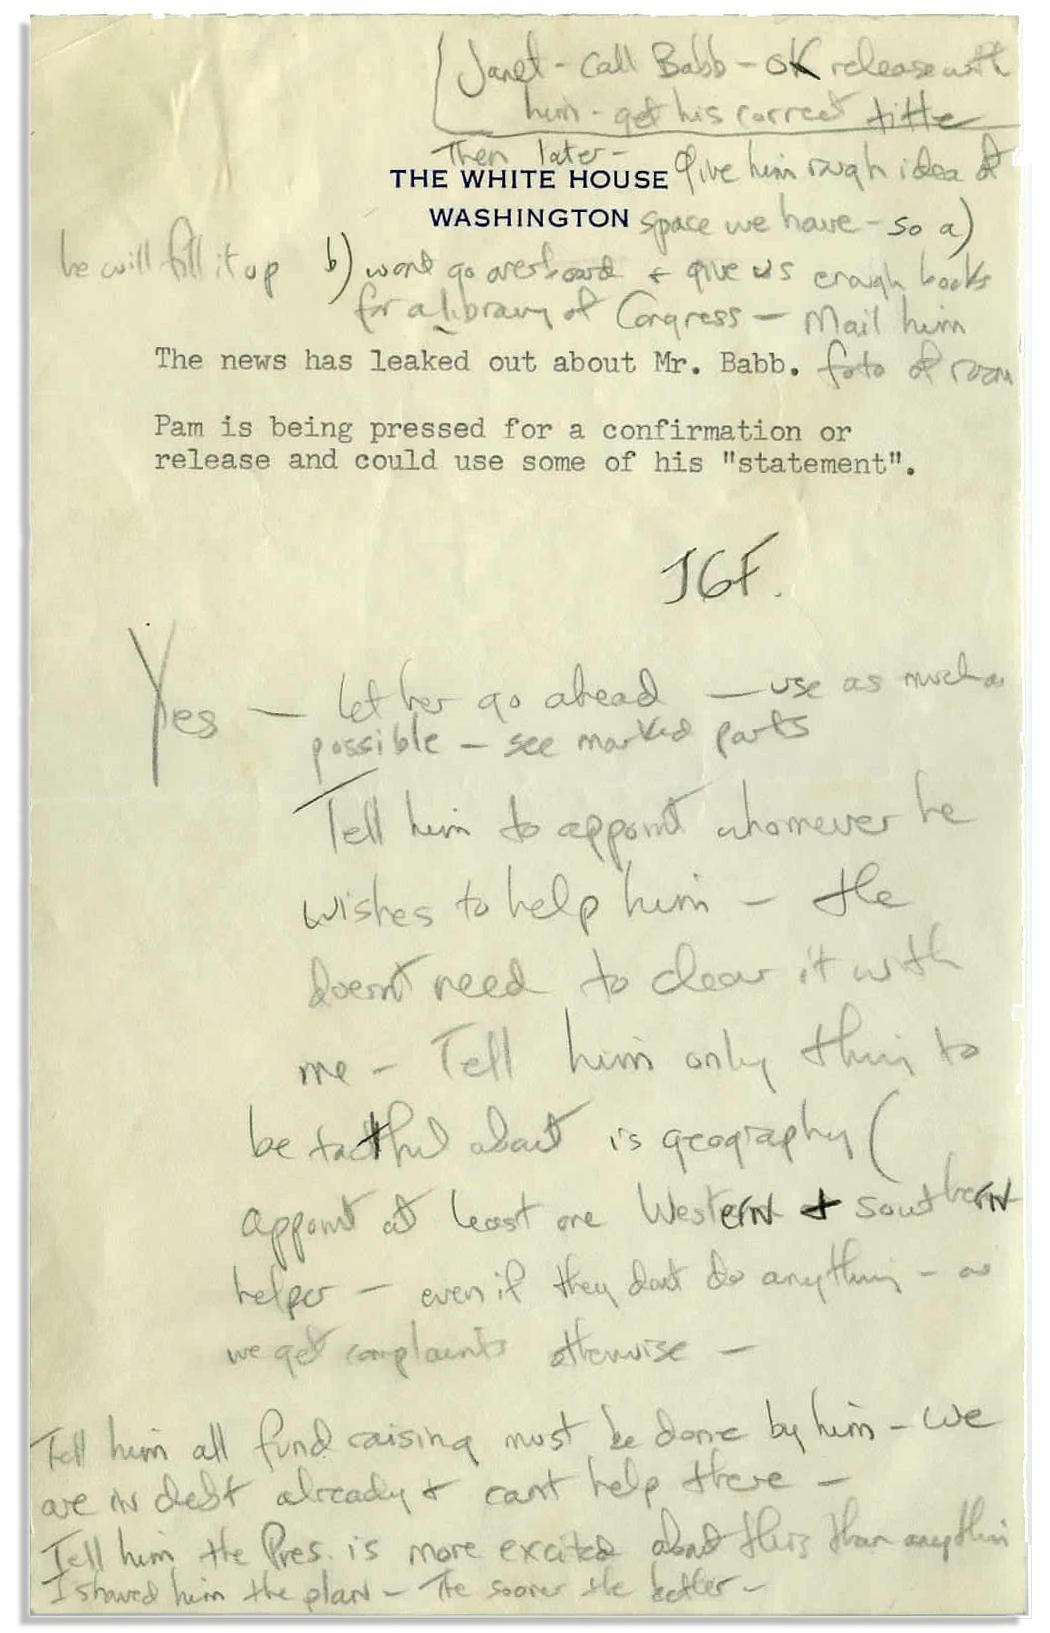 Janet - call Babb - OK release with
him - get his correct title
Then later - Give him rough idea of
THE WHITE HOUSE
WASHINGTON
space we have - so a)
he will fill it up b) wont go overboard + give us enough books
for a library of Congress - Mail him
foto of room
The news has leaked out about Mr. Babb.
Pam is being pressed for a confirmation or
release and could use some of his "statement".
JGF.
Yes - let her go ahead - use as much as
possible - see marked parts
Tell him to appoint whomever he
wishes to help him - He
doesnt need to clear it with
me - Tell him only thing to
be tactful about is geography (
appoint at least one Western + Southern
helper - even if they dont do anything - as
we get complaints otherwise -
Tell him all fund raising must be done by him - We
are in debt already + cant help there -
Tell him the Pres. is more excited about this than anything
I showed him the plan - The sooner the better -